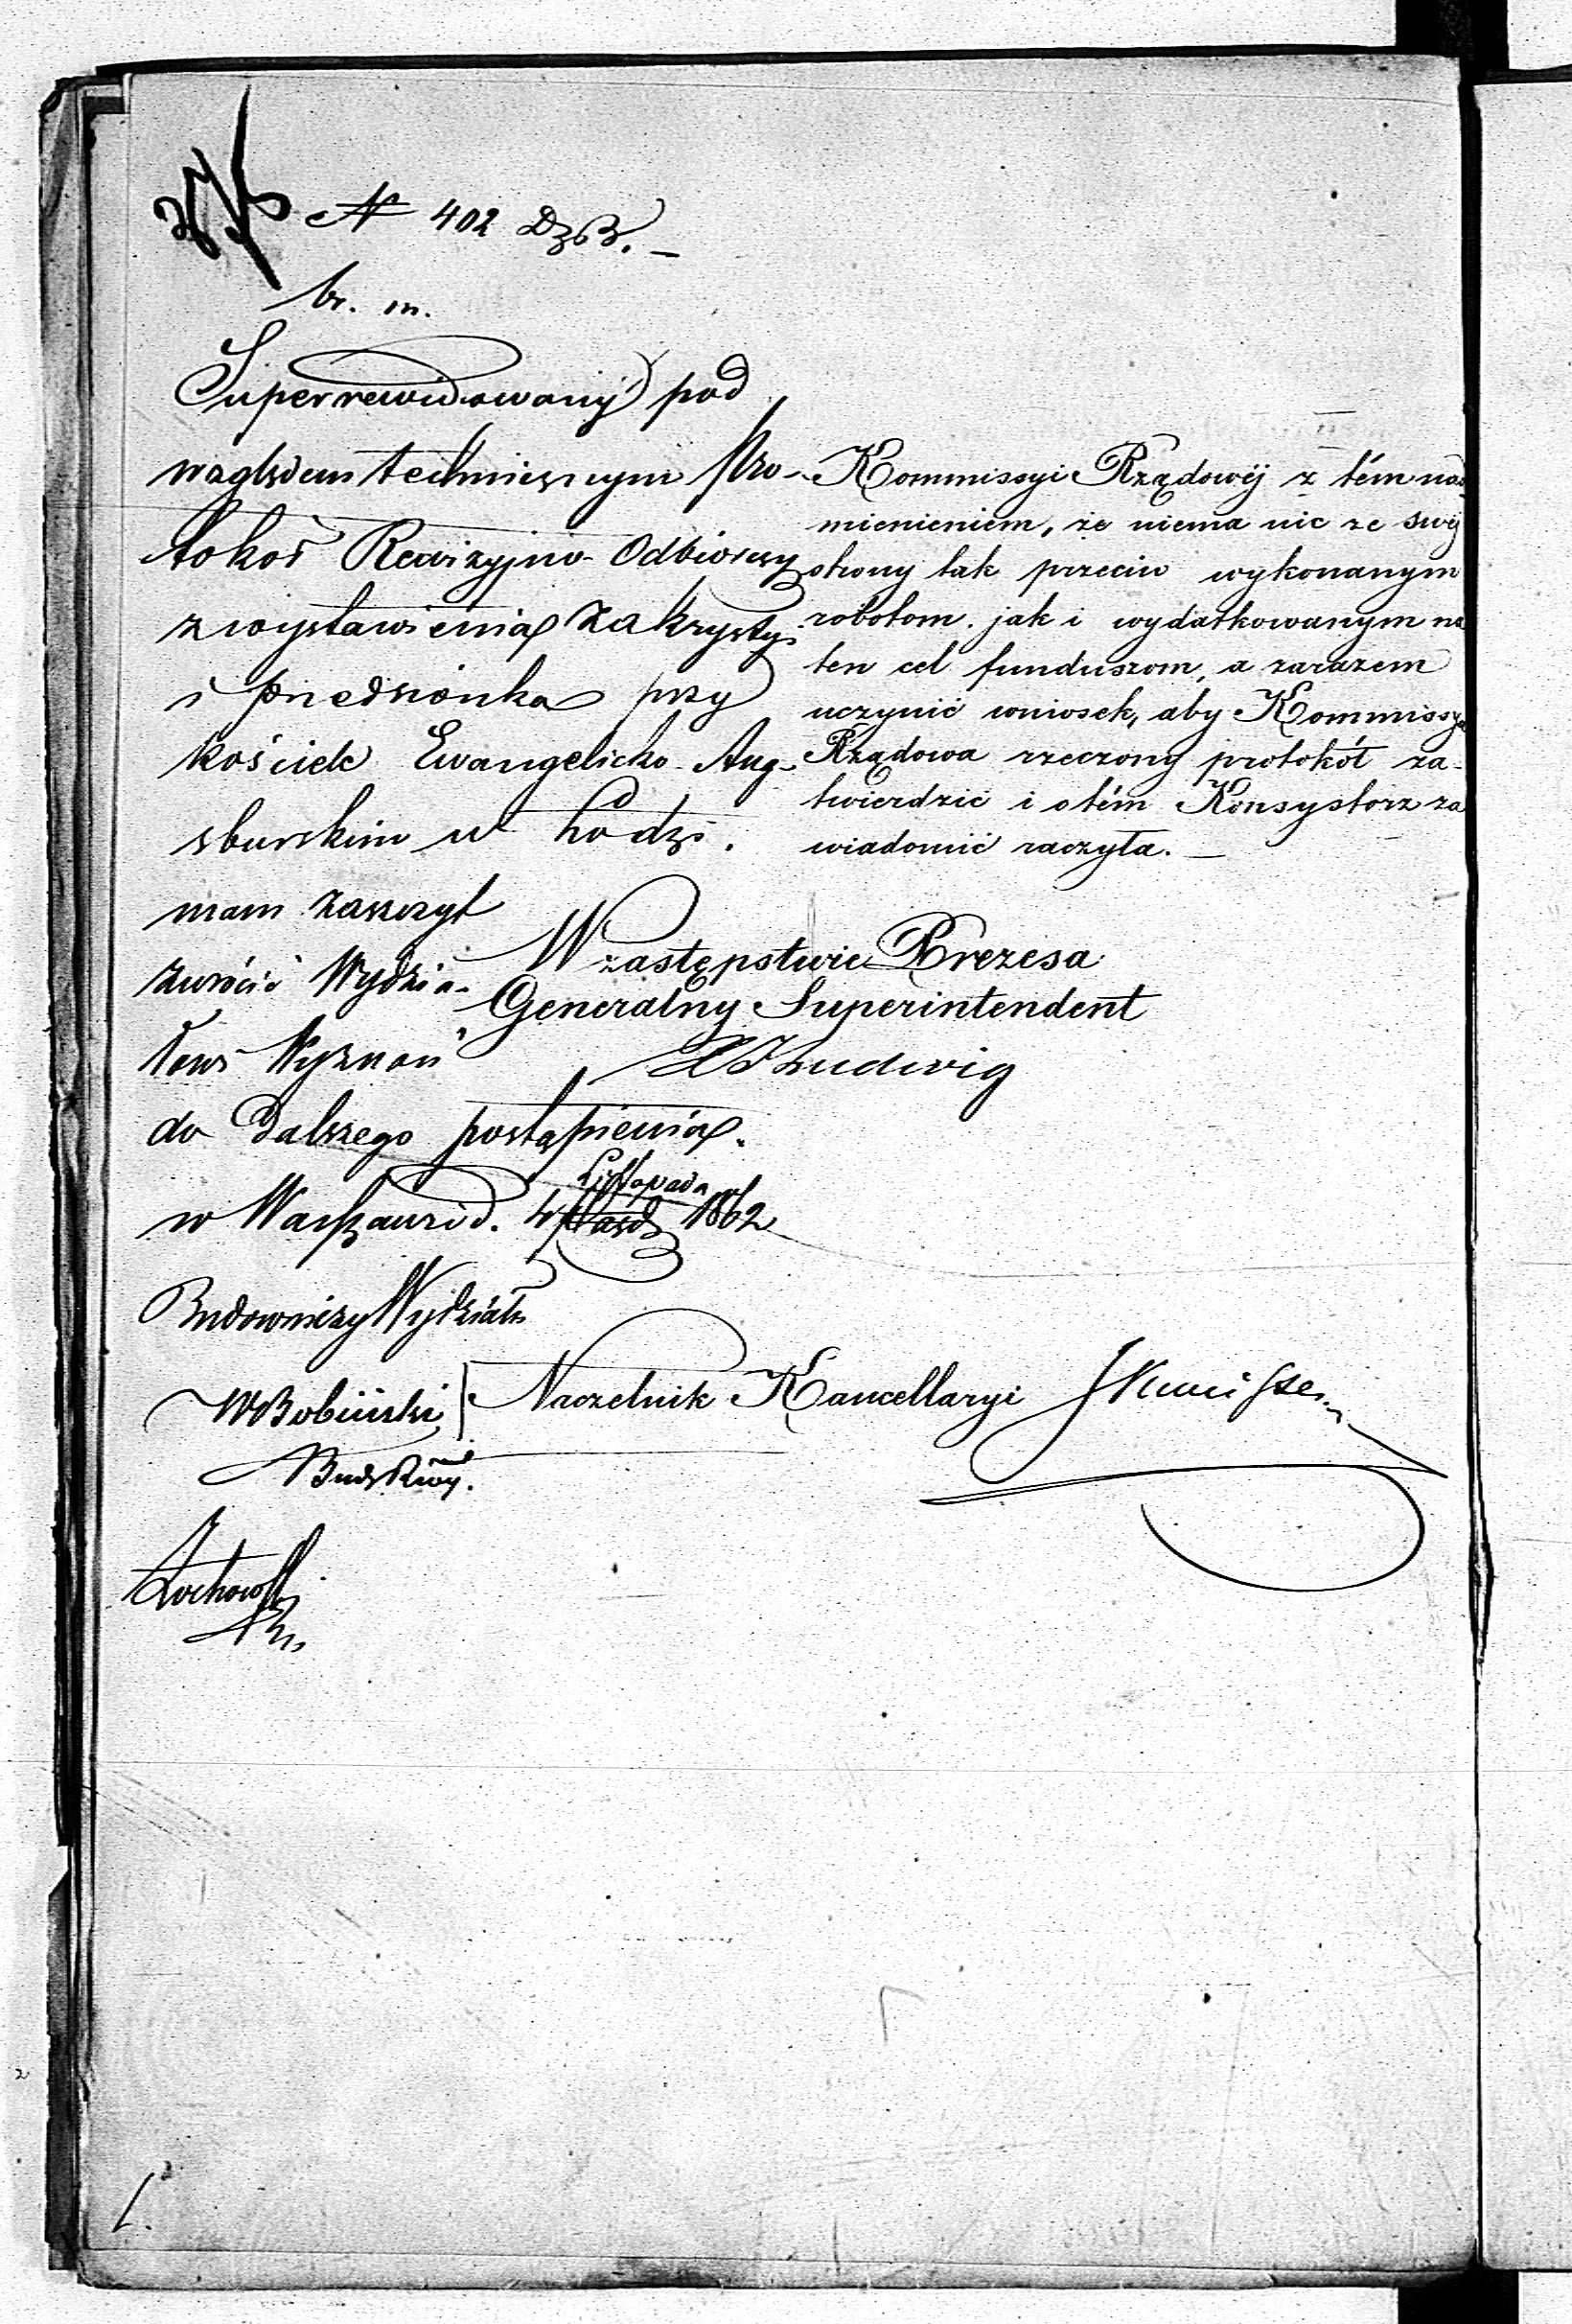 N 402 DzB. –
br. m.
Superrewidowany pod
względem technicznym Pro-
tokoł Rewizyjno-Odbiorczy
z wystawienia Zakrysty
i przedsionka przy
kościele Ewangelicko-Aug-
sburskim w Łodzi.
mam zaszczyt
zwrócić Wydzia-
łowi Wyznań
do dalszego postąpienia.
w Warszawie d. 4 Listopada 1862
Budowniczy Wydziału
WBobiński
Kommissyi Rządowéj z tém nad-
mienieniem, że niema nic ze swéj
strony tak przeciw wykonanym
robotom jak i wydatkowanym na
ten cel funduszom, a zarazem
uczynić wniosek, aby Kommissya
Rządowa rzeczony protokół za-
twierdzić i o tém Konsystorz za
wiadomić raczyła. –
W zastępstwie Prezesa
Generalny Superintendent
Ludwig
Naczelnik Kancellaryi